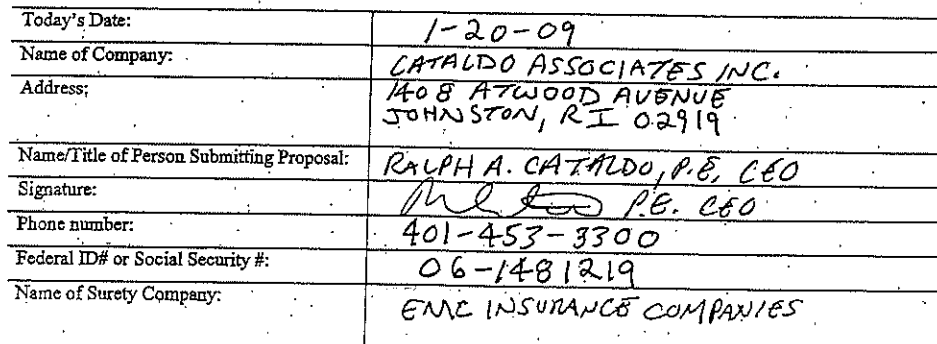 Today's Date: 1-20-09
Name of Company: CATALDO ASSOCIATES INC.
Address: 1408 ATWOOD AVENUE
JOHNSTON, RI 02919
Name/Title of Person Submitting Proposal: RALPH A. CATALDO, P.E. CEO
Signature: P.E. CEO
Phone number: 401-453-3300
Federal ID# or Social Security #: 06-1481219
Name of Surety Company: EMC INSURANCE COMPANIES